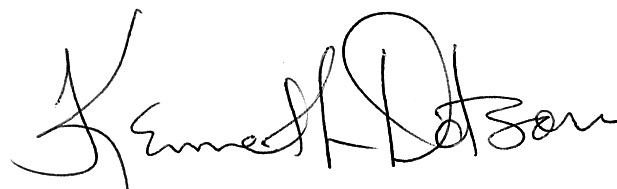 Kenneth Dotson